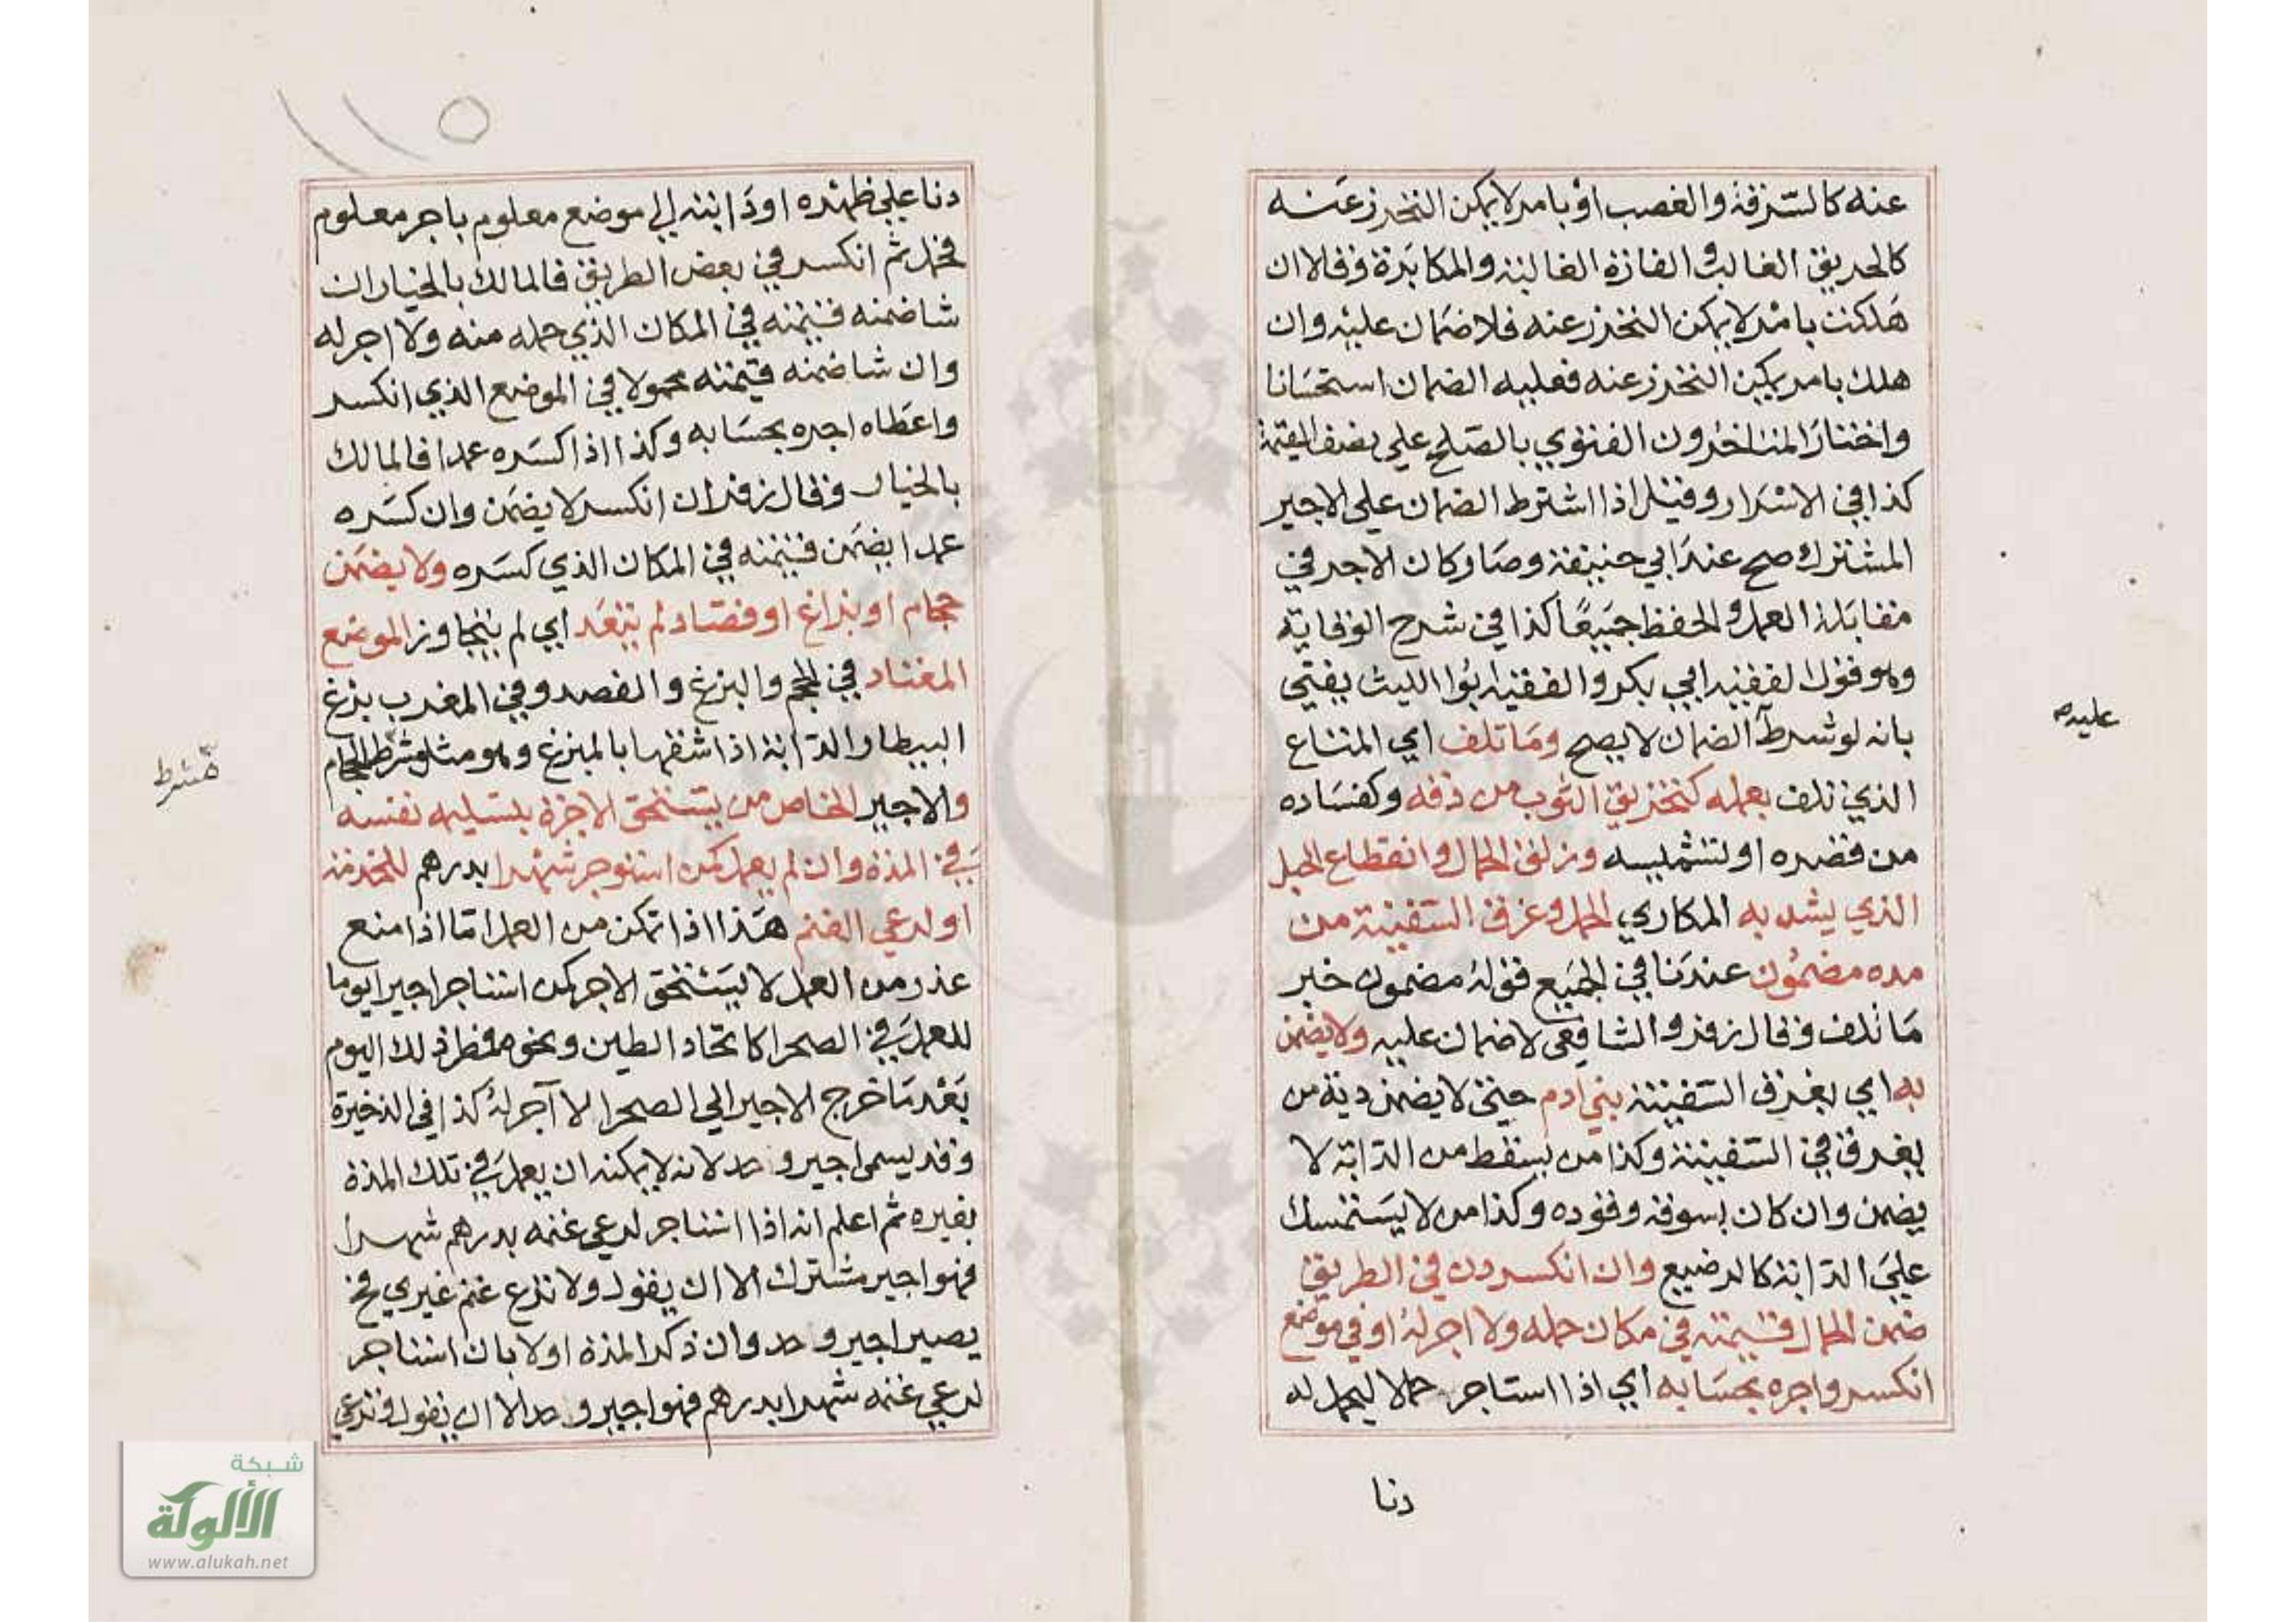 عنه كالسرقة والغصب او بامر لا يمكن التحرز عنه
كالحريق الغالب والغارة الغالبة والمكابرة وقالا ان
هلكت بامر لا يمكن التحرز عنه فلا ضمان عليه وان
هلك بامر يمكن التحرز عنه فعليه الضمان استحسانا
واختار المتاخرون الفتوي بالصلح علي نصف القيمة
كذا في الاسرار وقيل اذا اشترط الضمان علي الاجير
المشترك صح عند ابي حنيفة وصار كان الاجر في
مقابلة العمل والحفظ جميعًا كذا في شرح الوقاية
وهو قول الفقيه ابي بكر والفقيه ابو الليث يفتي
بانه لو شرط الضمان لا يصح وما تلف اي المتاع
الذي تلف بعمله كتخريق الثوب من دقه وكفساده
من قصره او لتشميسه وزلق الحمال وانقطاع الحبل
الذي يشد به المكاري الحمل وغرق السفينة من
مده مضمون عندنا في الجميع فقوله مضمون خبر
ما تلف وقال زفر والشافعي لا ضمان عليه ولا يضمن
به اي بغرق السفينة بني ادم حتي لا يضمن دية من
يغرق في السفينة وكذا من يسقط من الدابة لا
يضمن وان كان بسوقه وقوده وكذا من لا يستمسك
علي الدابة كالرضيع وان انكسر دن في الطريق
ضمن الحمال قيمته في مكان حمله ولا اجر له او في موضع
انكسر واجره بحسابه اي اذا استاجر حمالا ليحمل له
عليه
دنا
١١٥
دنا علي ظهره او دابته الي موضع معلوم باجر معلوم
فحمل ثم انكسر في بعض الطريق فالمالك بالخيار ان
شا ضمنه قيمته في المكان الذي حمله منه ولا اجر له
وان شا ضمنه قيمته محمولا في الموضع الذي انكسر
واعطاه اجره بحسابه وكذا اذا كسره عمدا فالمالك
بالخيار وقال زفر ان انكسر لا يضمن وان كسره
عمدا يضمن قيمته في المكان الذي كسره ولا يضمن
حجام او بزاغ او فصاد لم يتعد اي لم يتجاوز الموضع
المعتاد في الحجم والبزغ والفصد وفي المغرب بزغ
البيطار الدابة اذا شقها بالمبزغ وهو مثل مشرط الحجام
والاجير الخاص من يستحق الاجرة بتسليم نفسه
في المدة وان لم يعمل كمن استوجر شهرا بدرهم للخدمة
او لرعي الغنم هذا اذا تمكن من العمل اما اذا منع
عذر من العمل لا يستحق الاجر كمن استاجر اجيرا يوما
للعمل في الصحرا كاتخاد الطين ونحوه فمطر ذلك اليوم
بعد ما خرج الاجير الي الصحرا لا اجر له كذا في الذخيرة
وقد يسمي اجير وحد لانه لا يمكنه ان يعمل في تلك المدة
بغيره ثم اعلم انه اذا استاجر لرعي غنمه بدرهم شهرا
فهو اجير مشترك الا ان يقول ولا ترع غنم غيري فح
يصير اجير وحد وان ذكر المدة اولا بان استاجر
لرعي غنمه شهرا بدرهم فهو اجير وحد الا ان يقول وترعي
مشرط
شبكة
الألوكة
www.alukah.net